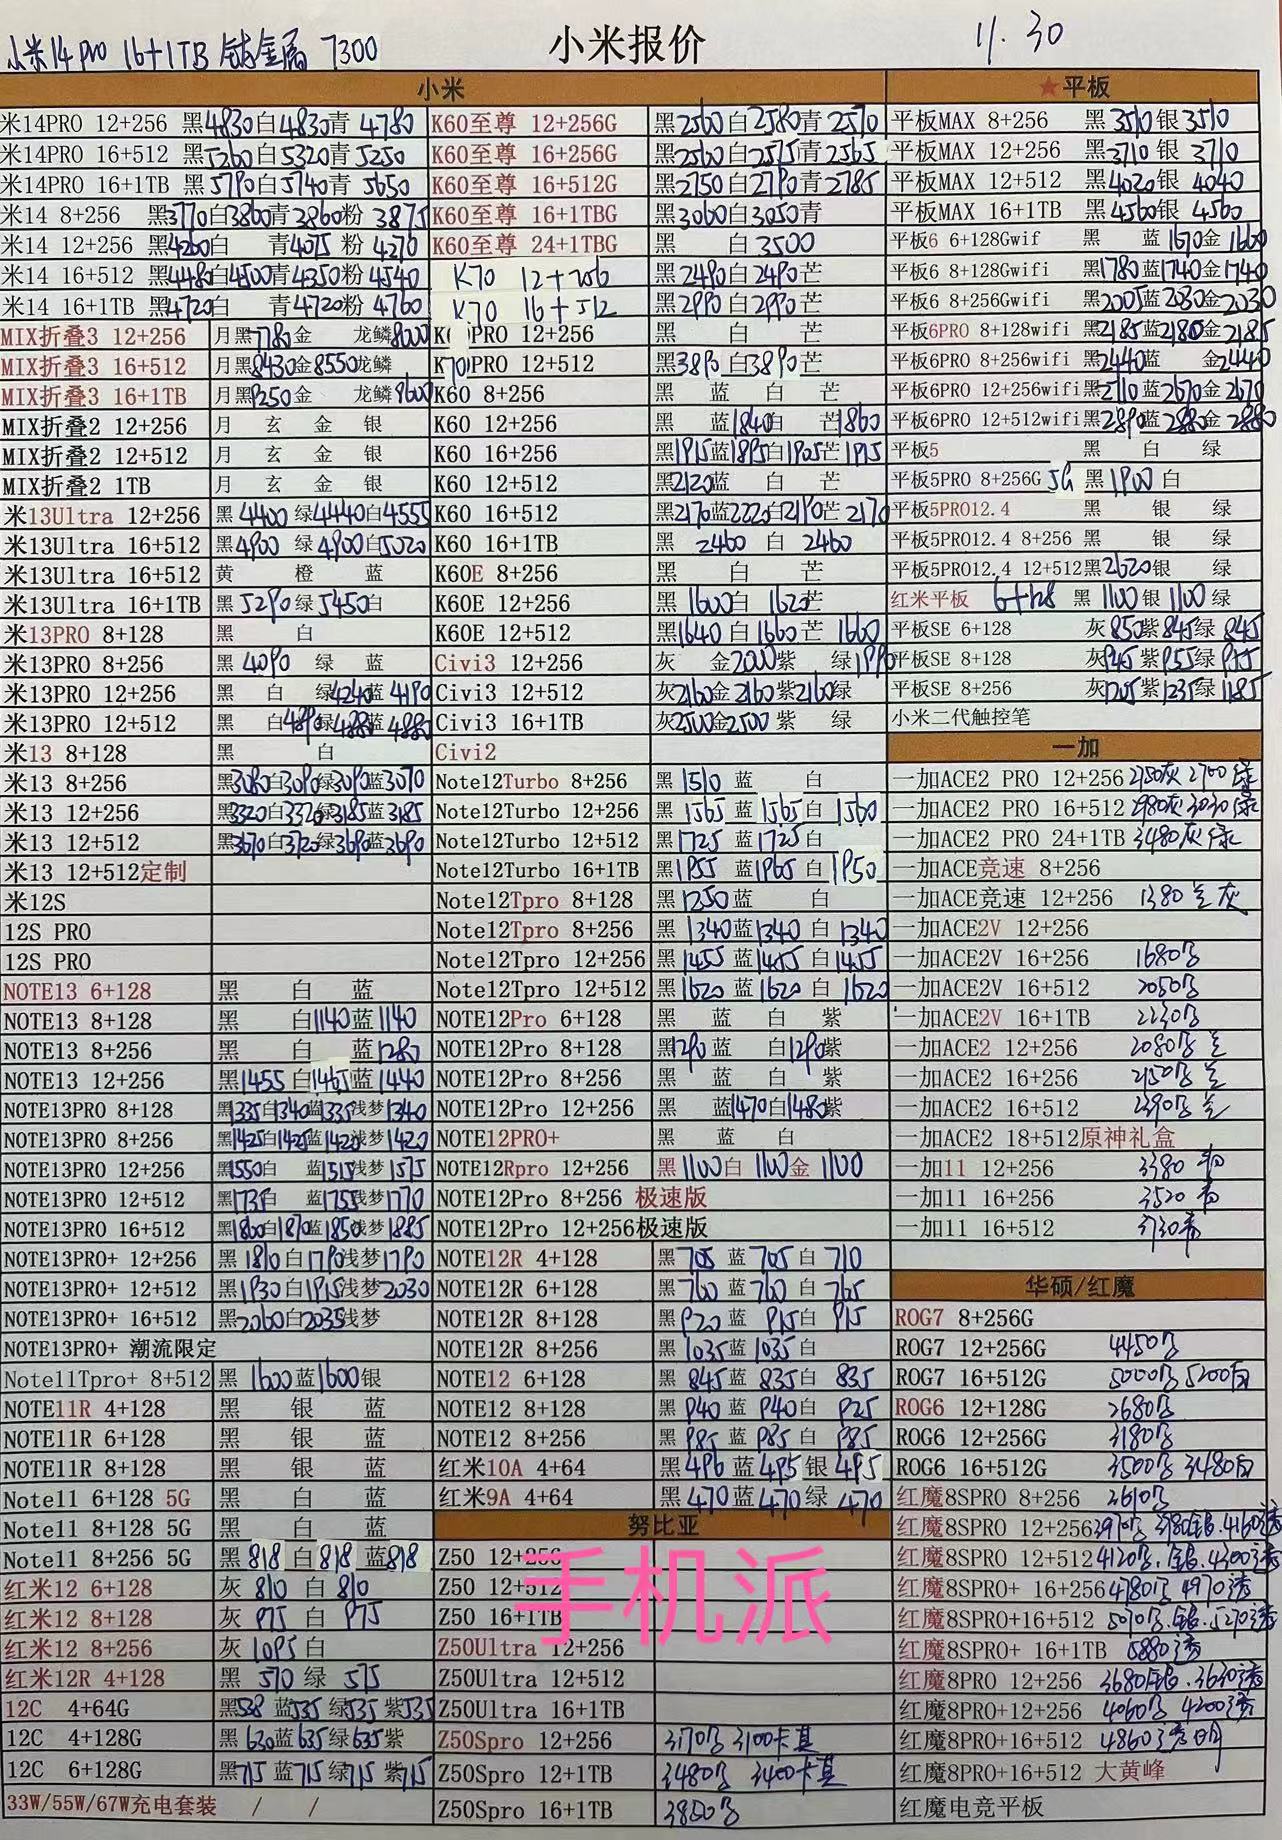 小米14pro 16+1TB 钛金属 7300
小米报价
11.30
小米
米14PRO 12+256 黑4830白4830青 4780
米14PRO 16+512 黑5260白5320青 5250
米14PRO 16+1TB 黑5790白5740青 5650
米14 8+256 黑3770白3860青3860粉 3875
米14 12+256 黑4260白 青4075 粉 4270
米14 16+512 黑4480白4500青4350粉 4540
米14 16+1TB 黑4720白 青4720粉 4760
MIX折叠3 12+256 月黑7780金 龙鳞8000
MIX折叠3 16+512 月黑8430金8550龙鳞
MIX折叠3 16+1TB 月黑9250金 龙鳞9600
MIX折叠2 12+256 月 玄 金 银
MIX折叠2 12+512 月 玄 金 银
MIX折叠2 1TB 月 玄 金 银
米13Ultra 12+256 黑 4400 绿4440白4555
米13Ultra 16+512 黑4900 绿4900白5020
米13Ultra 16+512 黄 橙 蓝
米13Ultra 16+1TB 黑 5290绿5450白
米13PRO 8+128 黑 白
米13PRO 8+256 黑 4090 绿 蓝
米13PRO 12+256 黑 白 绿4240蓝 4190
米13PRO 12+512 黑 白4890绿4880蓝 4880
米13 8+128 黑 白
米13 8+256 黑3080白3090绿3090蓝3070
米13 12+256 黑3320白3320绿3185蓝3185
米13 12+512 黑3670白3720绿3690蓝3690
米13 12+512定制
米12S
12S PRO
12S PRO
NOTE13 6+128 黑 白 蓝
NOTE13 8+128 黑 白1140蓝1140
NOTE13 8+256 黑 白 蓝1280
NOTE13 12+256 黑1455 白1465蓝 1440
NOTE13PRO 8+128 黑1335白1340蓝1335浅梦1340
NOTE13PRO 8+256 黑1425白1425蓝1420浅梦1420
NOTE13PRO 12+256 黑1550白 蓝1515浅梦1575
NOTE13PRO 12+512 黑1735白 蓝1755浅梦1770
NOTE13PRO 16+512 黑1860白1870蓝1850浅梦1885
NOTE13PRO+ 12+256 黑 1810白1790浅梦1790
NOTE13PRO+ 12+512 黑1930白1915浅梦2030
NOTE13PRO+ 16+512 黑2060白2035浅梦
NOTE13PRO+ 潮流限定
Note11Tpro+ 8+512 黑 1600蓝1600银
NOTE11R 4+128 黑 银 蓝
NOTE11R 6+128 黑 银 蓝
NOTE11R 8+128 黑 银 蓝
Note11 6+128 5G 黑 白 蓝
Note11 8+128 5G 黑 白 蓝
Note11 8+256 5G 黑 818 白 818 蓝818
红米12 6+128 灰 810 白 810
红米12 8+128 灰 975 白 975
红米12 8+256 灰 1095白
红米12R 4+128 黑 570 绿 575
12C 4+64G 黑538 蓝535 绿535 紫535
12C 4+128G 黑630蓝635绿635紫
12C 6+128G 黑715 蓝715 绿715 紫715
33W/55W/67W充电套装 / /
K60至尊 12+256G 黑2560白2580青2570
K60至尊 16+256G 黑2560白2575青2565
K60至尊 16+512G 黑2750白2790青2785
K60至尊 16+1TBG 黑3060白3050青
K60至尊 24+1TBG 黑 白3500
K70 12+256 黑2490白2490芒
K70 16+512 黑2990白2990芒
PRO 12+256 黑 白 芒
K70PRO 12+512 黑3890白3890芒
K60 8+256 黑 蓝 白 芒
K60 12+256 黑 蓝1840白 芒1860
K60 16+256 黑1915蓝1895白1905芒1915
K60 12+512 黑2120蓝 白 芒
K60 16+512 黑2170蓝2220白2190芒 2170
K60 16+1TB 黑 2460 白 2460
K60E 8+256 黑 白 芒
K60E 12+256 黑 1600白 1620芒
K60E 12+512 黑1640 白1660芒 1660
Civi3 12+256 灰 金2000紫 绿1990
Civi3 12+512 灰2160金2160紫2160绿
Civi3 16+1TB 灰2500金2500 紫 绿
Civi2
Note12Turbo 8+256 黑 1510 蓝 白
Note12Turbo 12+256 黑 1565 蓝1565白 1560
Note12Turbo 12+512 黑1725 蓝1725白
Note12Turbo 16+1TB 黑1955 蓝1965 白 1950
Note12Tpro 8+128 黑1250蓝 白
Note12Tpro 8+256 黑 1340蓝1340 白 1340
Note12Tpro 12+256 黑1455 蓝1455 白1455
Note12Tpro 12+512 黑1620 蓝1620 白 1620
NOTE12Pro 6+128 黑 蓝 白 紫
NOTE12Pro 8+128 黑1290 蓝 白1290紫
NOTE12Pro 8+256 黑 蓝 白 紫
NOTE12Pro 12+256 黑 蓝1470白1480紫
NOTE12PRO+ 黑 蓝 白
NOTE12Rpro 12+256 黑1100白 1100金 1100
NOTE12Pro 8+256 极速版
NOTE12Pro 12+256极速版
NOTE12R 4+128 黑 705 蓝705 白 710
NOTE12R 6+128 黑760 蓝760 白 765
NOTE12R 8+128 黑920 蓝 915白 915
NOTE12R 8+256 黑 1035蓝1035白
NOTE12 6+128 黑 845 蓝 835白 835
NOTE12 8+128 黑 940 蓝 940白 925
NOTE12 8+256 黑 985 蓝 985 白 985
红米10A 4+64 黑 496 蓝495 银 495
红米9A 4+64 黑 470蓝470 绿 470
努比亚
Z50 12+256
Z50 12+512
Z50 16+1TB
Z50Ultra 12+256
Z50Ultra 12+512
Z50Ultra 16+1TB
Z50Spro 12+256 3170 3100卡其
Z50Spro 12+1TB 3480 3400卡其
Z50Spro 16+1TB 3800
手机派
★平板
平板MAX 8+256 黑 3510银3510
平板MAX 12+256 黑3710 银 3710
平板MAX 12+512 黑4020银 4040
平板MAX 16+1TB 黑4560银 4560
平板6 6+128Gwif 黑 蓝1670金 1660
平板6 8+128Gwifi 黑1780蓝1740金1740
平板6 8+256Gwifi 黑2005蓝2030金2030
平板6PRO 8+128wifi 黑2185蓝2180金2185
平板6PRO 8+256wifi 黑2440蓝 金2440
平板6PRO 12+256wifi黑2710蓝2670金2670
平板6PRO 12+512wifi黑2890蓝2880金2880
平板5 黑 白 绿
平板5PRO 8+256G 5G 黑1900白
平板5PRO12.4 黑 银 绿
平板5PRO12.4 8+256 黑 银 绿
平板5PRO12.4 12+512黑2620银 绿
红米平板 6+128 黑 1100银1100绿
平板SE 6+128 灰850紫845绿 845
平板SE 8+128 灰945紫955绿
平板SE 8+256 灰1205紫1235绿1185
小米二代触控笔
一加
一加ACE2 PRO 12+256 2750灰 2700绿
一加ACE2 PRO 16+512 2980灰3030绿
一加ACE2 PRO 24+1TB 3480灰绿
一加ACE竞速 8+256
一加ACE竞速 12+256 1380 兰灰
一加ACE2V 12+256
一加ACE2V 16+256 1680
一加ACE2V 16+512 2050
一加ACE2V 16+1TB 2230
一加ACE2 12+256 2080
一加ACE2 16+256 2150
一加ACE2 16+512 2390
一加ACE2 18+512原神礼盒
一加11 12+256 3380
一加11 16+256 3520
一加11 16+512 3730
华硕/红魔
ROG7 8+256G
ROG7 12+256G 4450
ROG7 16+512G 5000 5200白
ROG6 12+128G 2680
ROG6 12+256G 3180
ROG6 16+512G 3500 3480白
红魔8SPRO 8+256 3610
红魔8SPRO 12+256 3970 4160透
红魔8SPRO 12+512 4120 4300透
红魔8SPRO+ 16+256 4780 4970透
红魔8SPRO+16+512 5070 5270透
红魔8SPRO+ 16+1TB 5880透
红魔8PRO 12+256 3680 3630透
红魔8PRO+12+256 4060 4200透
红魔8PRO+16+512 4860透明
红魔8PRO+16+512 大黄蜂
红魔电竞平板